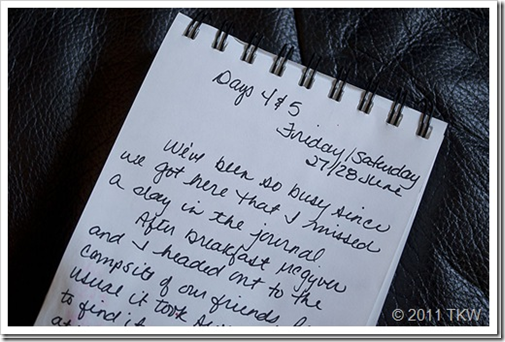 Days 4 & 5
Friday/Saturday
27/28 June
We've been so busy since
we got here that I missed
a day in the journal
After breakfast McGyver
and I headed out to the
campsite of our friends
usual it took
to find it
© 2011 TKW